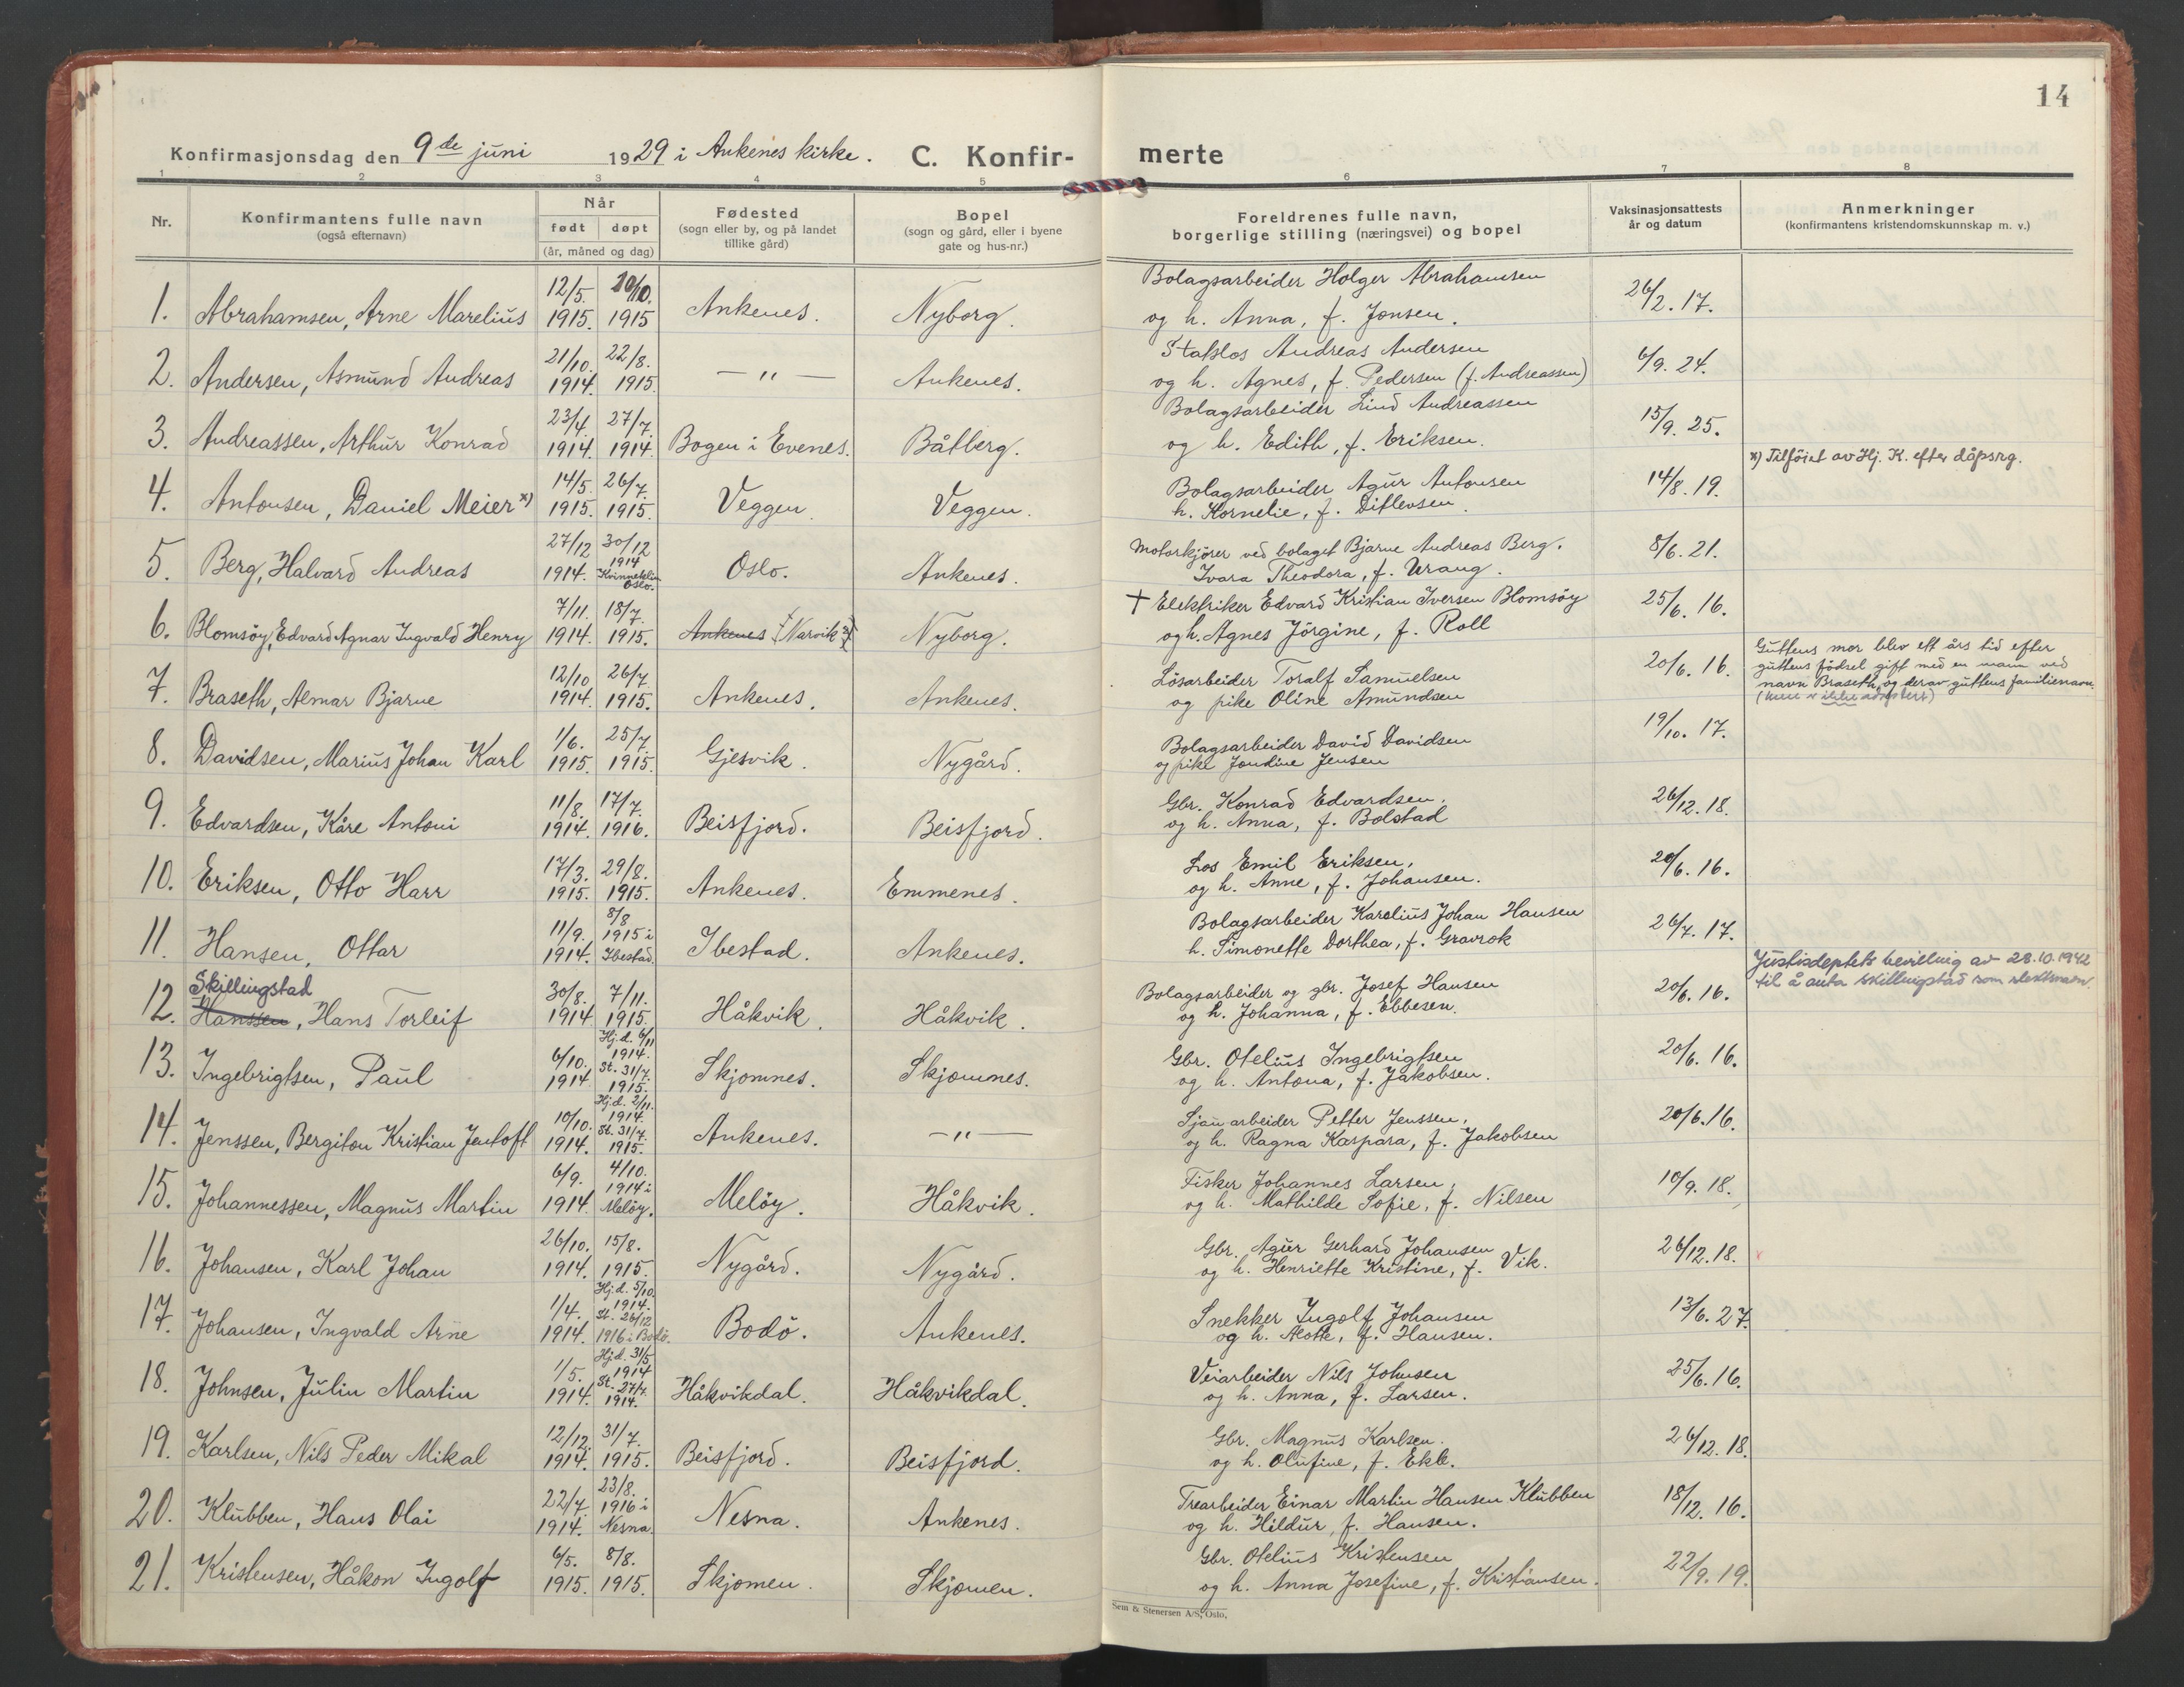 14
Konfirmasjonsdag den 9de juni 1929 i Ankenes kirke. C. Konfir- merte
1 2 3 4 5 6 7 8
Nr. Konfirmantens fulle navn (også efternavn) Når født døpt (år, måned og dag) Fødested (sogn eller by, og på landet tillike gård) Bopel (sogn og gård, eller i byene gate og hus-nr.) Foreldrenes fulle navn, borgerlige stilling (næringsvei) og bopel Vaksinasjonsattests år og datum Anmerkninger (konfirmantens kristendomskunnskap m. v.)
12/5. 10/10. Bolagsarbeider Holger Abrahamsen
1. Abrahamsen, Arne Marelius 1915. 1915 Ankenes. Nyborg. og h. Anna, f. Jonsen. 26/2. 17.
21/10. 22/8. Statslos Andreas Andersen
2. Andersen, Asmund Andreas 1914. 1915. — " — Ankenes. og h. Agnes, f. Pedersen (f. Andreassen) 6/9. 24.
23/4. 27/7. Bolagsarbeider Lind Andreassen
3. Andreassen, Arthur Konrad 1914. 1914. Bogen i Evenes. Båtberg. og h. Edith, f. Eriksen. 15/9. 25.
x) Tilföiet av Hj. K. efter dåpsrg.
14/5. 26/7. Bolagsarbeider Agur Antonsen
4. Antonsen, Daniel Meier x) 1915. 1915. Veggen. Veggen. h. Kornelie, f. Ditlevsen. 14/8. 19.
27/12 30/12 1914 Motorkjører ved bolaget Bjarne Andreas Berg.
5. Berg, Halvard Andreas 1914. Kvinneklin Oslo. Oslo. Ankenes. Ivara Theodora, f. Urang. 8/6. 21.
7/11. 18/7. + Elektriker Edvard Kristian Iversen Blomsöy
6. Blomsöy, Edvard Agnar Ingvald Henry 1914. 1915. Ankenes Narvik Nyborg. og h. Agnes Jörgine, f. Roll 25/6. 16.
12/10 26/7. Lösarbeider Toralf Samuelsen
7. Braseth, Almar Bjarne 1914. 1915. Ankenes. Ankenes. og pike Oline Amundsen 20/6. 16.
Guttens mor blev ett års tid efter
guttens födsel gift med en mann ved
navn Braseth, og derav guttens familienavn.
(men er ikke adoptert)
1/6. 25/7. Bolagsarbeider David Davidsen
8. Davidsen, Marius Johan Karl 1915. 1915. Gjesvik. Nygård. og pike Jondine Jensen 19/10. 17.
11/8. 17/7. Gbr. Konrad Edvardsen.
9. Edvardsen, Kåre Antoni 1914. 1916. Beisfjord. Beisfjord. og h. Anna, f. Bolstad 26/12. 18.
17/3. 29/8. Los Emil Eriksen,
10. Eriksen, Otto Harr 1915. 1915. Ankenes. Emmenes. og h. Anne, f. Johansen. 20/6. 16.
11/9. 8/8 1915 i Bolagsarbeider Karelius Johan Hansen
11. Hansen, Ottar 1914. Ibestad. Ibestad. Ankenes. h. Simonette Dorthea, f. Gravrok 26/7. 17.
Skillingstad 30/8. 7/11. Bolagsarbeider og gbr. Josef Hansen
12. Hanssen, Hans Torleif 1914 1915. Håkvik. Håkvik. og h. Johanna, f. Ebbesen. 20/6. 16.
Justisdeptets bevilling av 28.10.1942
til å anta Skillingstad som slektsnavn.
6/10. Hj. d. 6/11 1914. Gbr. Otelius Ingebrigtsen
13. Ingebrigtsen, Paul 1914 St. 31/7. 1915. Skjomnes. Skjomnes. og h. Antona, f. Jakobsen. 20/6. 16.
10/10. Hj. d. 2/11. 1914. Sjauarbeider Petter Jenssen,
14. Jenssen, Bergiton Kristian Jentoft 1914. St. 31/7. 1915. Ankenes. — " — og h. Ragna Kaspara, f. Jakobsen 20/6. 16.
6/9. 4/10. 1914 i Fisker Johannes Larsen,
15. Johannessen, Magnus Martin 1914. Melöy. Melöy. Håkvik. og h. Mathilde Sofie, f. Nilsen 10/9. 18.
26/10. 15/8. Gbr. Agur Gerhard Johansen
16. Johansen, Karl Johan 1914. 1915. Nygård. Nygård. og h. Henriette Kristine, f. Vik. 26/12. 18.
1/4. Hj. d. 5/10. 1914. Snekker Ingolf Johansen
17. Johansen, Ingvald Arne 1914. St. 26/12 1916 i Bodö. Bodö. Ankenes. og h. Alotte, f. Hansen. 13/6. 27.
1/5. Hj. d. 31/5 1914 Veiarbeider Nils Johnsen
18. Johnsen, Julin Martin 1914. St. 27/7. 1914. Håkvikdal. Håkvikdal. og h. Anna, f. Larsen. 25/6. 16.
12/12. 31/7. Gbr. Magnus Karlsen.
19. Karlsen, Nils Peder Mikal 1914. 1915. Beisfjord. Beisfjord. og h. Olufine, f. Ekle. 26/12. 18.
22/7. 23/8. 1916 i Trearbeider Einar Martin Hansen Klubben
20. Klubben, Hans Olai 1914. Nesna. Nesna. Ankenes. og h. Hildur, f. Hansen. 18/12. 16.
6/5. 8/8. Gbr. Otelius Kristensen
21. Kristensen, Håkon Ingolf 1915. 1915. Skjomen. Skjomen. og h. Anna Josefine, f. Kristiansen. 22/9. 19.
Sem & Stenersen A/S, Oslo.